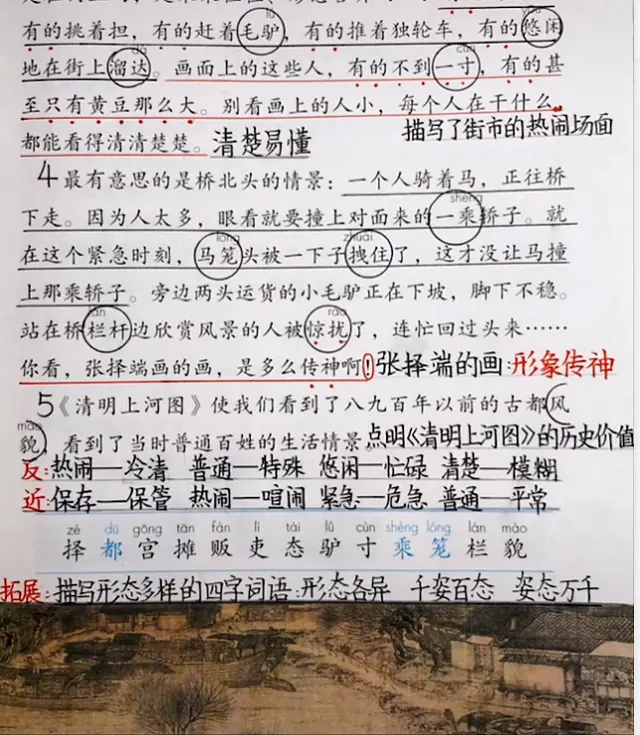 有的挑着担，有的赶着毛驴，有的推着独轮车，有的悠闲
地在街上溜达。画面上的这些人，有的不到一寸，有的甚
至只有黄豆那么大。别看画上的人小，每个人在干什么，
都能看得清清楚楚。清楚易懂 描写了街市的热闹场面
4 最有意思的是桥北头的情景：一个人骑着马，正往桥
shèng
下走。因为人太多，眼看就要撞上对面来的一乘轿子。就
lóng zhuài
在这个紧急时刻，马笼头被一下子拽住了，这才没让马撞
上那乘轿子。旁边两头运货的小毛驴正在下坡，脚下不稳。
lán rǎo
站在桥栏杆边欣赏风景的人被惊扰了，连忙回过头来……
你看，张择端画的画，是多么传神啊！张择端的画：形象传神
5《清明上河图》使我们看到了八九百年以前的古都风
mào
貌，看到了当时普通百姓的生活情景。点明《清明上河图》的历史价值
反：热闹—冷清 普通—特殊 悠闲—忙碌 清楚—模糊
近：保存—保管 热闹—喧闹 紧急—危急 普通—平常
zé dū gōng tān fàn lì tài lǘ cùn shèng lóng lán mào
择 都 宫 摊 贩 吏 态 驴 寸 乘 笼 栏 貌
拓展：描写形态多样的四字词语：形态各异 千姿百态 姿态万千